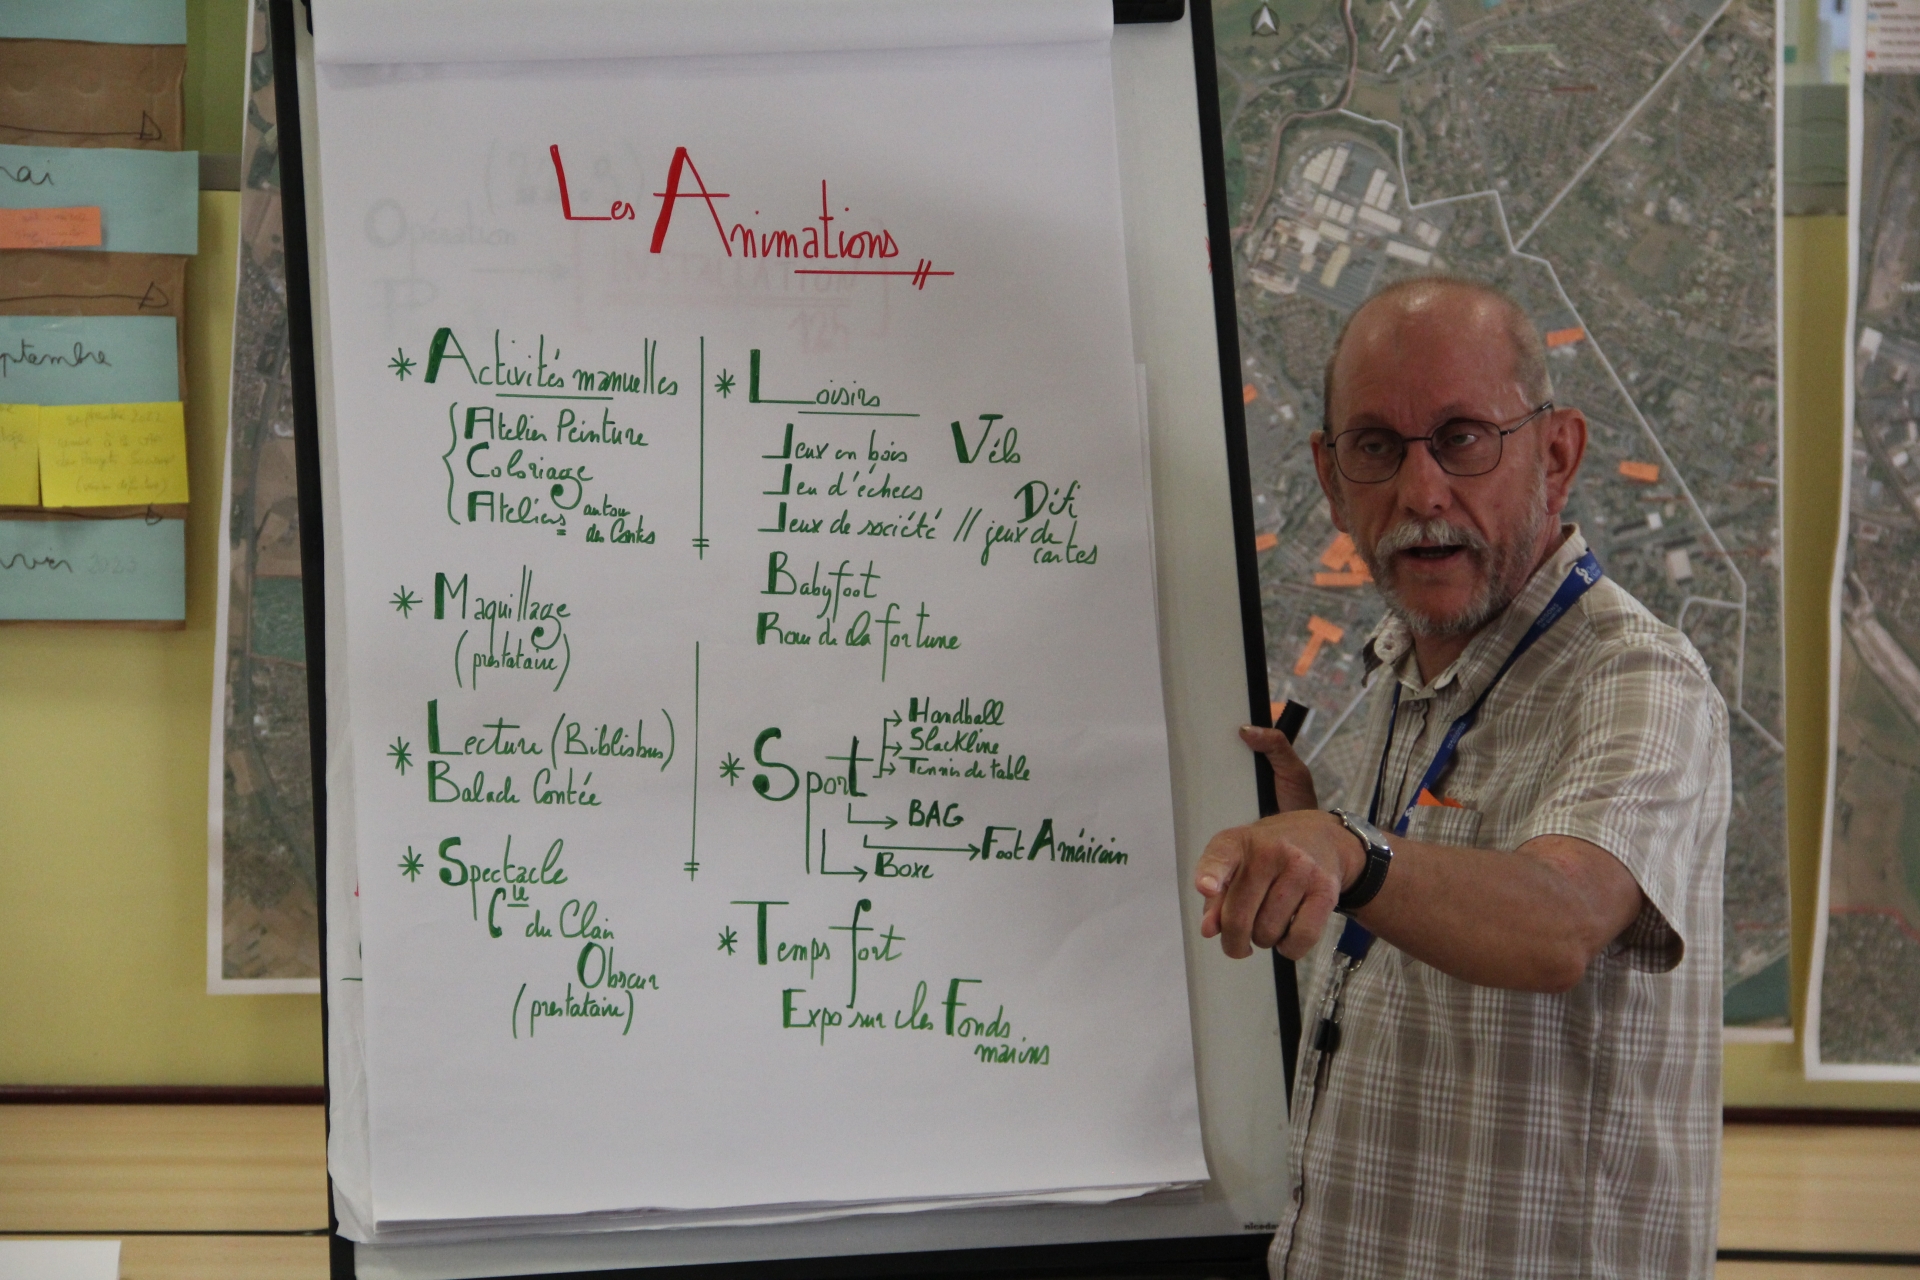 Les Animations
* Activités manuelles
Atelier Peinture
Coloriage
Ateliers autour
des Contes
* Maquillage
(prestataire)
* Lecture (Bibliobus)
Balade Contée
* Spectacle
Cie du Clair
Obscur
(prestataire)
* Loisirs
Jeux en bois
Vélo
Jeu d'échecs
Défi
Jeux de société // jeux de
cartes
Babyfoot
Roue de la fortune
* Sport
Handball
Slackline
Tennis de table
BAG
Foot Américain
Boxe
* Temps fort
Expo sur les Fonds
marins
Opération
INSTALLATION
12h
ai
ptembre
septembre 2022
2023